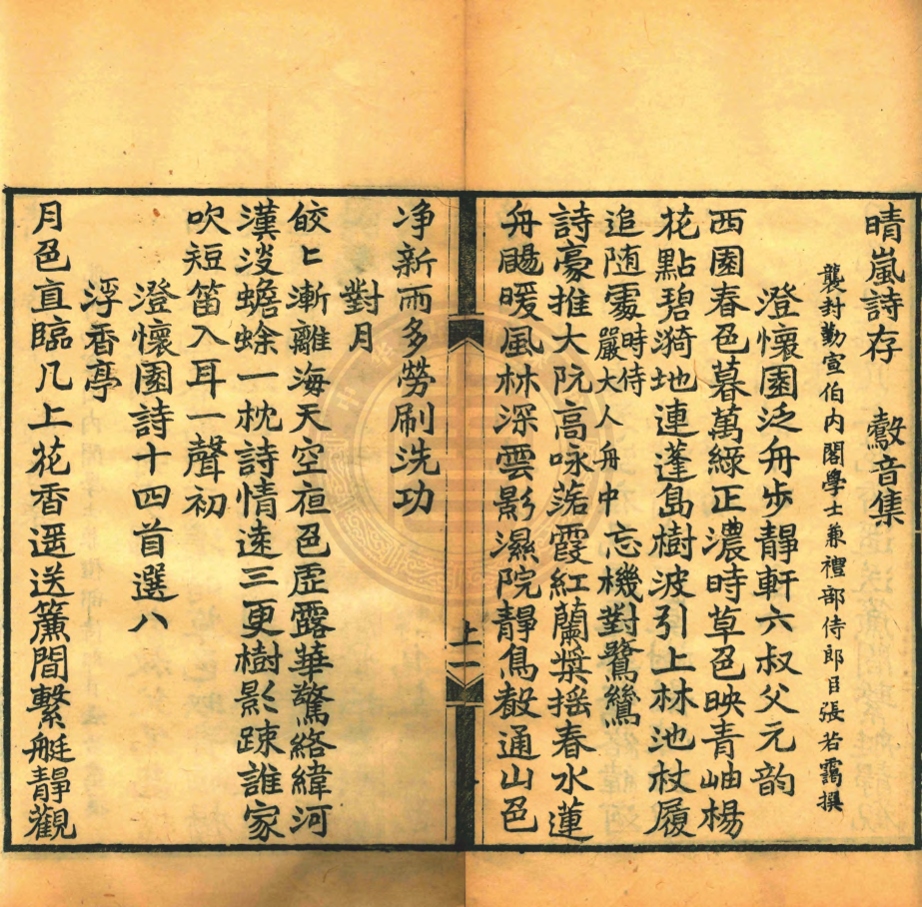 晴嵐詩存　鷇音集
襲封勤宣伯內閣學士兼禮部侍郎臣張若靄撰
澄懷園泛舟步靜軒六叔父元韵
西園春色暮萬綠正濃時草色映青岫楊
花點碧漪地連蓬島樹波引上林池杖履
追随處時侍嚴大人舟中忘機對鷺鷥
詩豪推大阮高咏落霞紅蘭槳揺春水蓮
舟颺暖風林深雲影濕院靜鳥聲通山色
上一
净新雨多勞刷洗功
對月
皎〻漸離海天空夜色虛露華驚絡緯河
漢淡蟾蜍一枕詩情遠三更樹影踈誰家
吹短笛入耳一聲初
澄懷園詩十四首選八
浮香亭
月色直臨几上花香遥送簾間繫艇靜觀